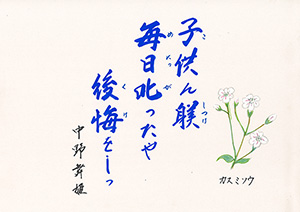 子供ん躾
毎日叱ったや
後悔をしっ
中野
カスミソウ